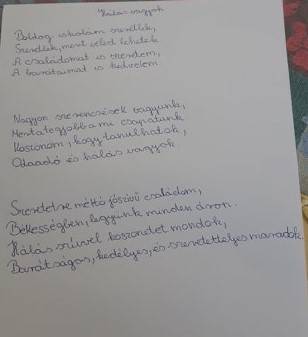 Hálás vagyok
Boldog iskolám szeretlek,
Szeretlek, mert veled lehetek
A családomat is szeretem,
A barátaimat is kedvelem
Nagyon szerencsések vagyunk,
Mert a legjobb a mi csapatunk
Köszönöm, hogy tanulhatok,
Odaadó és hálás vagyok
Szeretetre méltó jószívű családom,
Békességben, legyünk minden áron.
Hálás szívvel köszönetet mondok,
Barátságos, kedélyes, és szeretetteljes maradok.